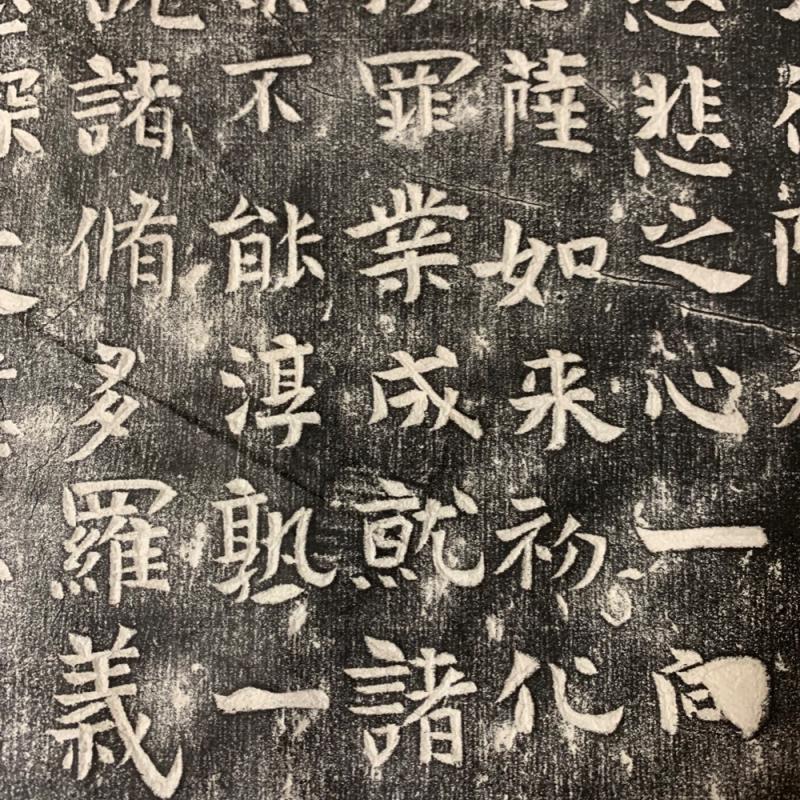 悲之心一向
薩如来初化
罪業成就諸
不能淳熟一
諸脩多羅義
深